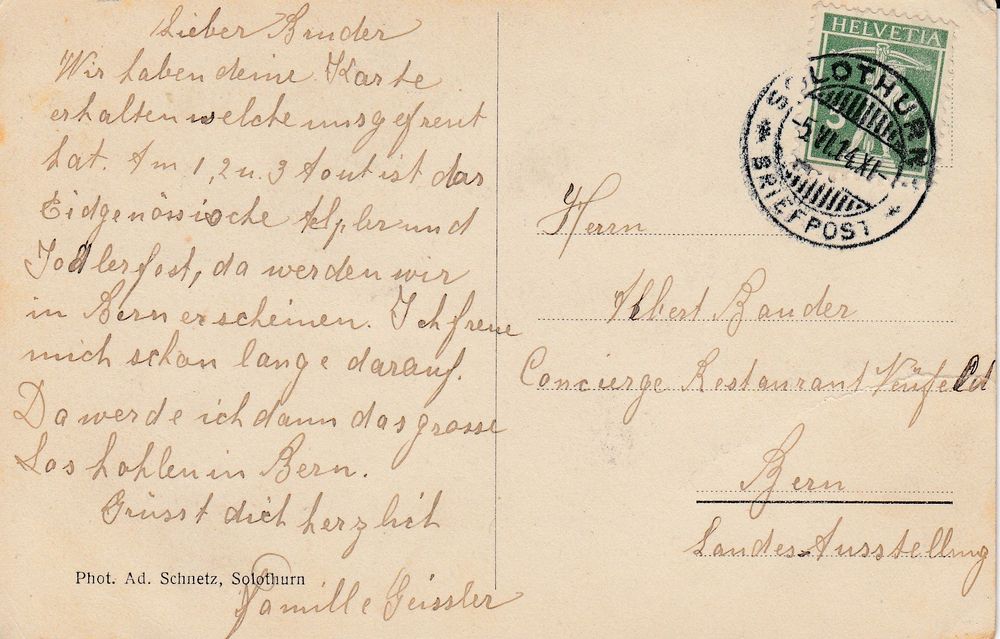 Lieber Bruder
Wir haben deine Karte
erhalten welche uns gefreut
hat. Am 1, 2 u. 3 Aout ist das
Eidgenössische Älpler und
Jodlerfest, da werden wir
in Bern erscheinen. Ich freue
mich schon lange darauf.
Da werde ich dann das grosse
Los hohlen in Bern.
Grüsst dich herzlich
Famille Geissler
Phot. Ad. Schnetz, Solothurn
HELVETIA
5
SOLOTHURN
-5.VI.14.XI-
BRIEFPOST
Herrn
Albert Bauder
Concierge Restaurant Neufeld
Bern
Landes-Ausstellung